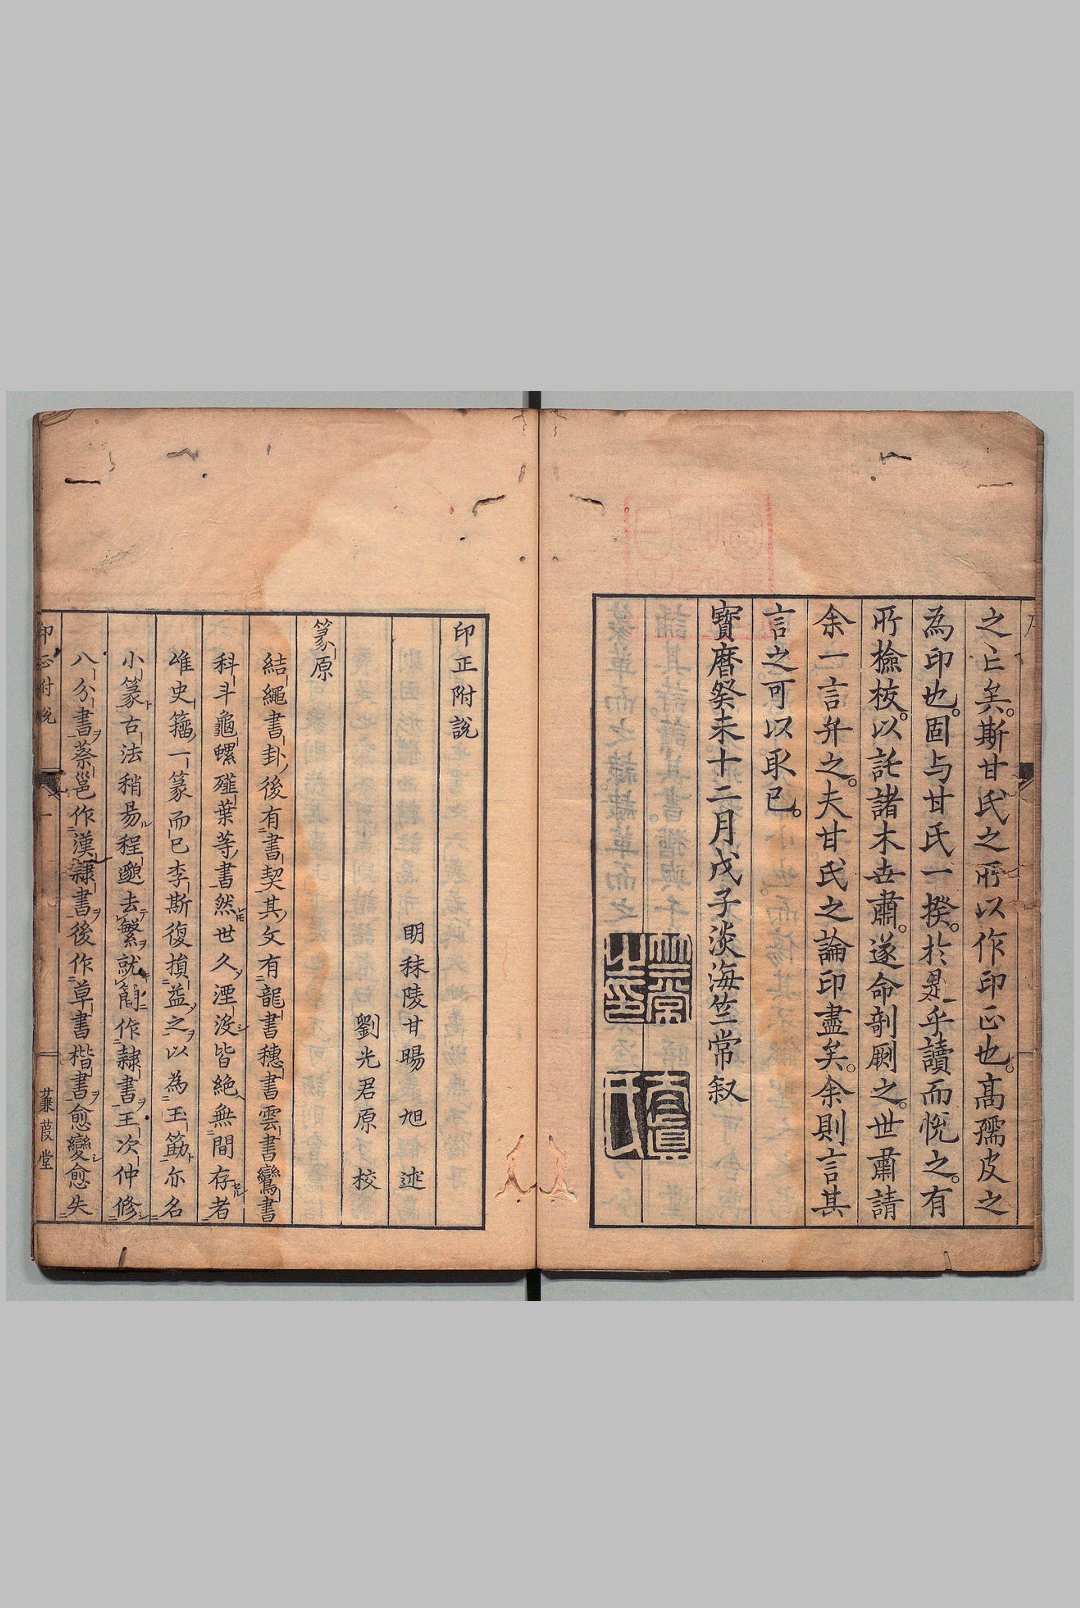 之亡矣。斯甘氏之所以作印正也。高孺皮之
為印也。固与甘氏一揆。於是乎讀而悅之。有
所撿校。以託諸木世肅。遂命剞劂之。世肅請
余一言弁之。夫甘氏之論印盡矣。余則言其
言之可以取已。
寶曆癸未十二月戊子淡海竺常叙
竺常之印
印正附說
明秣陵甘暘旭述
劉光君原校
篆原
結繩書卦後有書契其文有龍書穗書雲書鸞書
科斗龜螺薤葉等書然世久湮没皆絶無間存者
唯史籀一篆而已李斯復損益之以為玉筯亦名
小篆古法稍易程邈去繁就簡作隷書王次仲修
八分書蔡邕作漢隷書後作草書楷書愈變愈失
印正附說
一
蒹葭堂